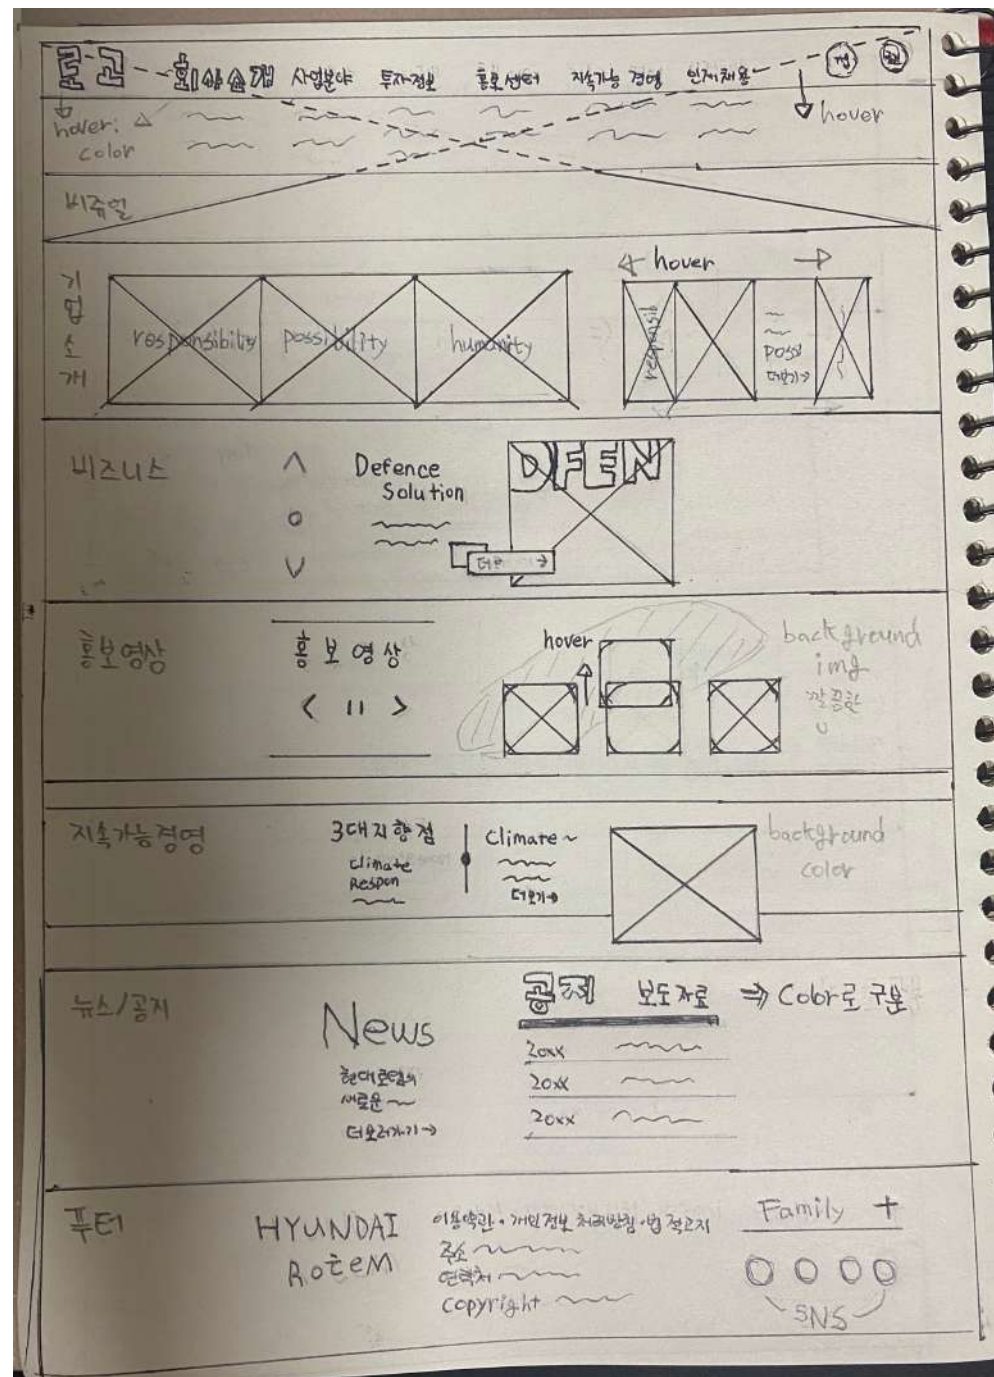 로고 회사소개 사업분야 투자정보 홍보센터 지속가능 경영 인재채용 검
hover:
color
hover
비쥬얼
기업소개
responsibility possibility humanity
hover
responsib
possi
더보기→
비즈니스
Defence
Solution
DFEN
홍보영상
홍보영상
< II >
hover
background
img
깔끔한
지속가능경영
3대지향점
Climate
Respon
Climate ~
더보기→
background
color
뉴스/공지
News
현대로템의
새로운
더보러가기→
공지 보도자료 ⇒ Color로 구분
20xx
20xx
20xx
푸터
HYUNDAI
RoteM
이용약관 · 개인정보 처리방침 · 법적고지
주소
연락처
copyright
Family +
SNS